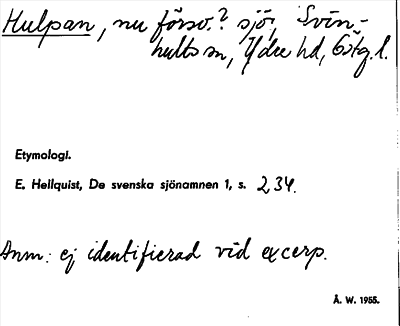 Hulpan, nu försv.? sjö, Svin-
hults sn, Ydre hd, Östg. l.
Etymologi.
E. Hellquist, De svenska sjönamnen 1, s. 234.
Anm: ej identifierad vid excerp.
Å. W. 1955.